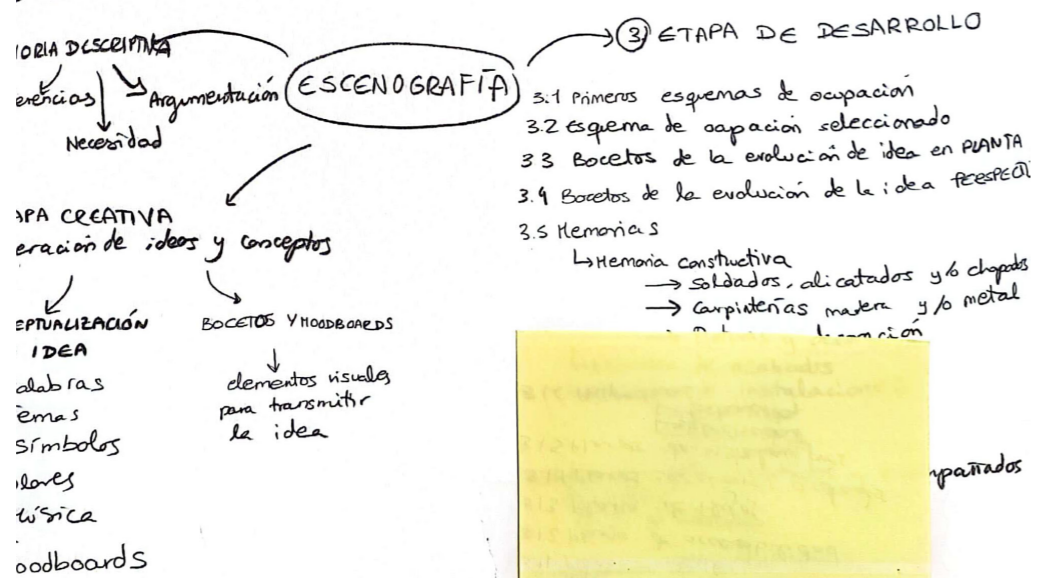 ORIA DESCRIPTIVA
erencias
Necesidad
Argumentación
ESCENOGRAFÍA
APA CREATIVA
eración de ideas y conceptos
EPTUALIZACIÓN
IDEA
alabras
emas
símbolos
lores
úsica
oodboards
BOCETOS Y MOODBOARDS
elementos visuales
para transmitir
la idea
3 ETAPA DE DESARROLLO
3.1 Primeros esquemas de ocupación
3.2 Esquema de ocupación seleccionado
3.3 Bocetos de la evolución de idea en PLANTA
3.4 Bocetos de la evolución de la idea PERSPECTI
3.5 Memorias
Memoria constuctiva
→ soldados, alicatados y/o chapados
→ carpinterías madera y/o metal
mpañados